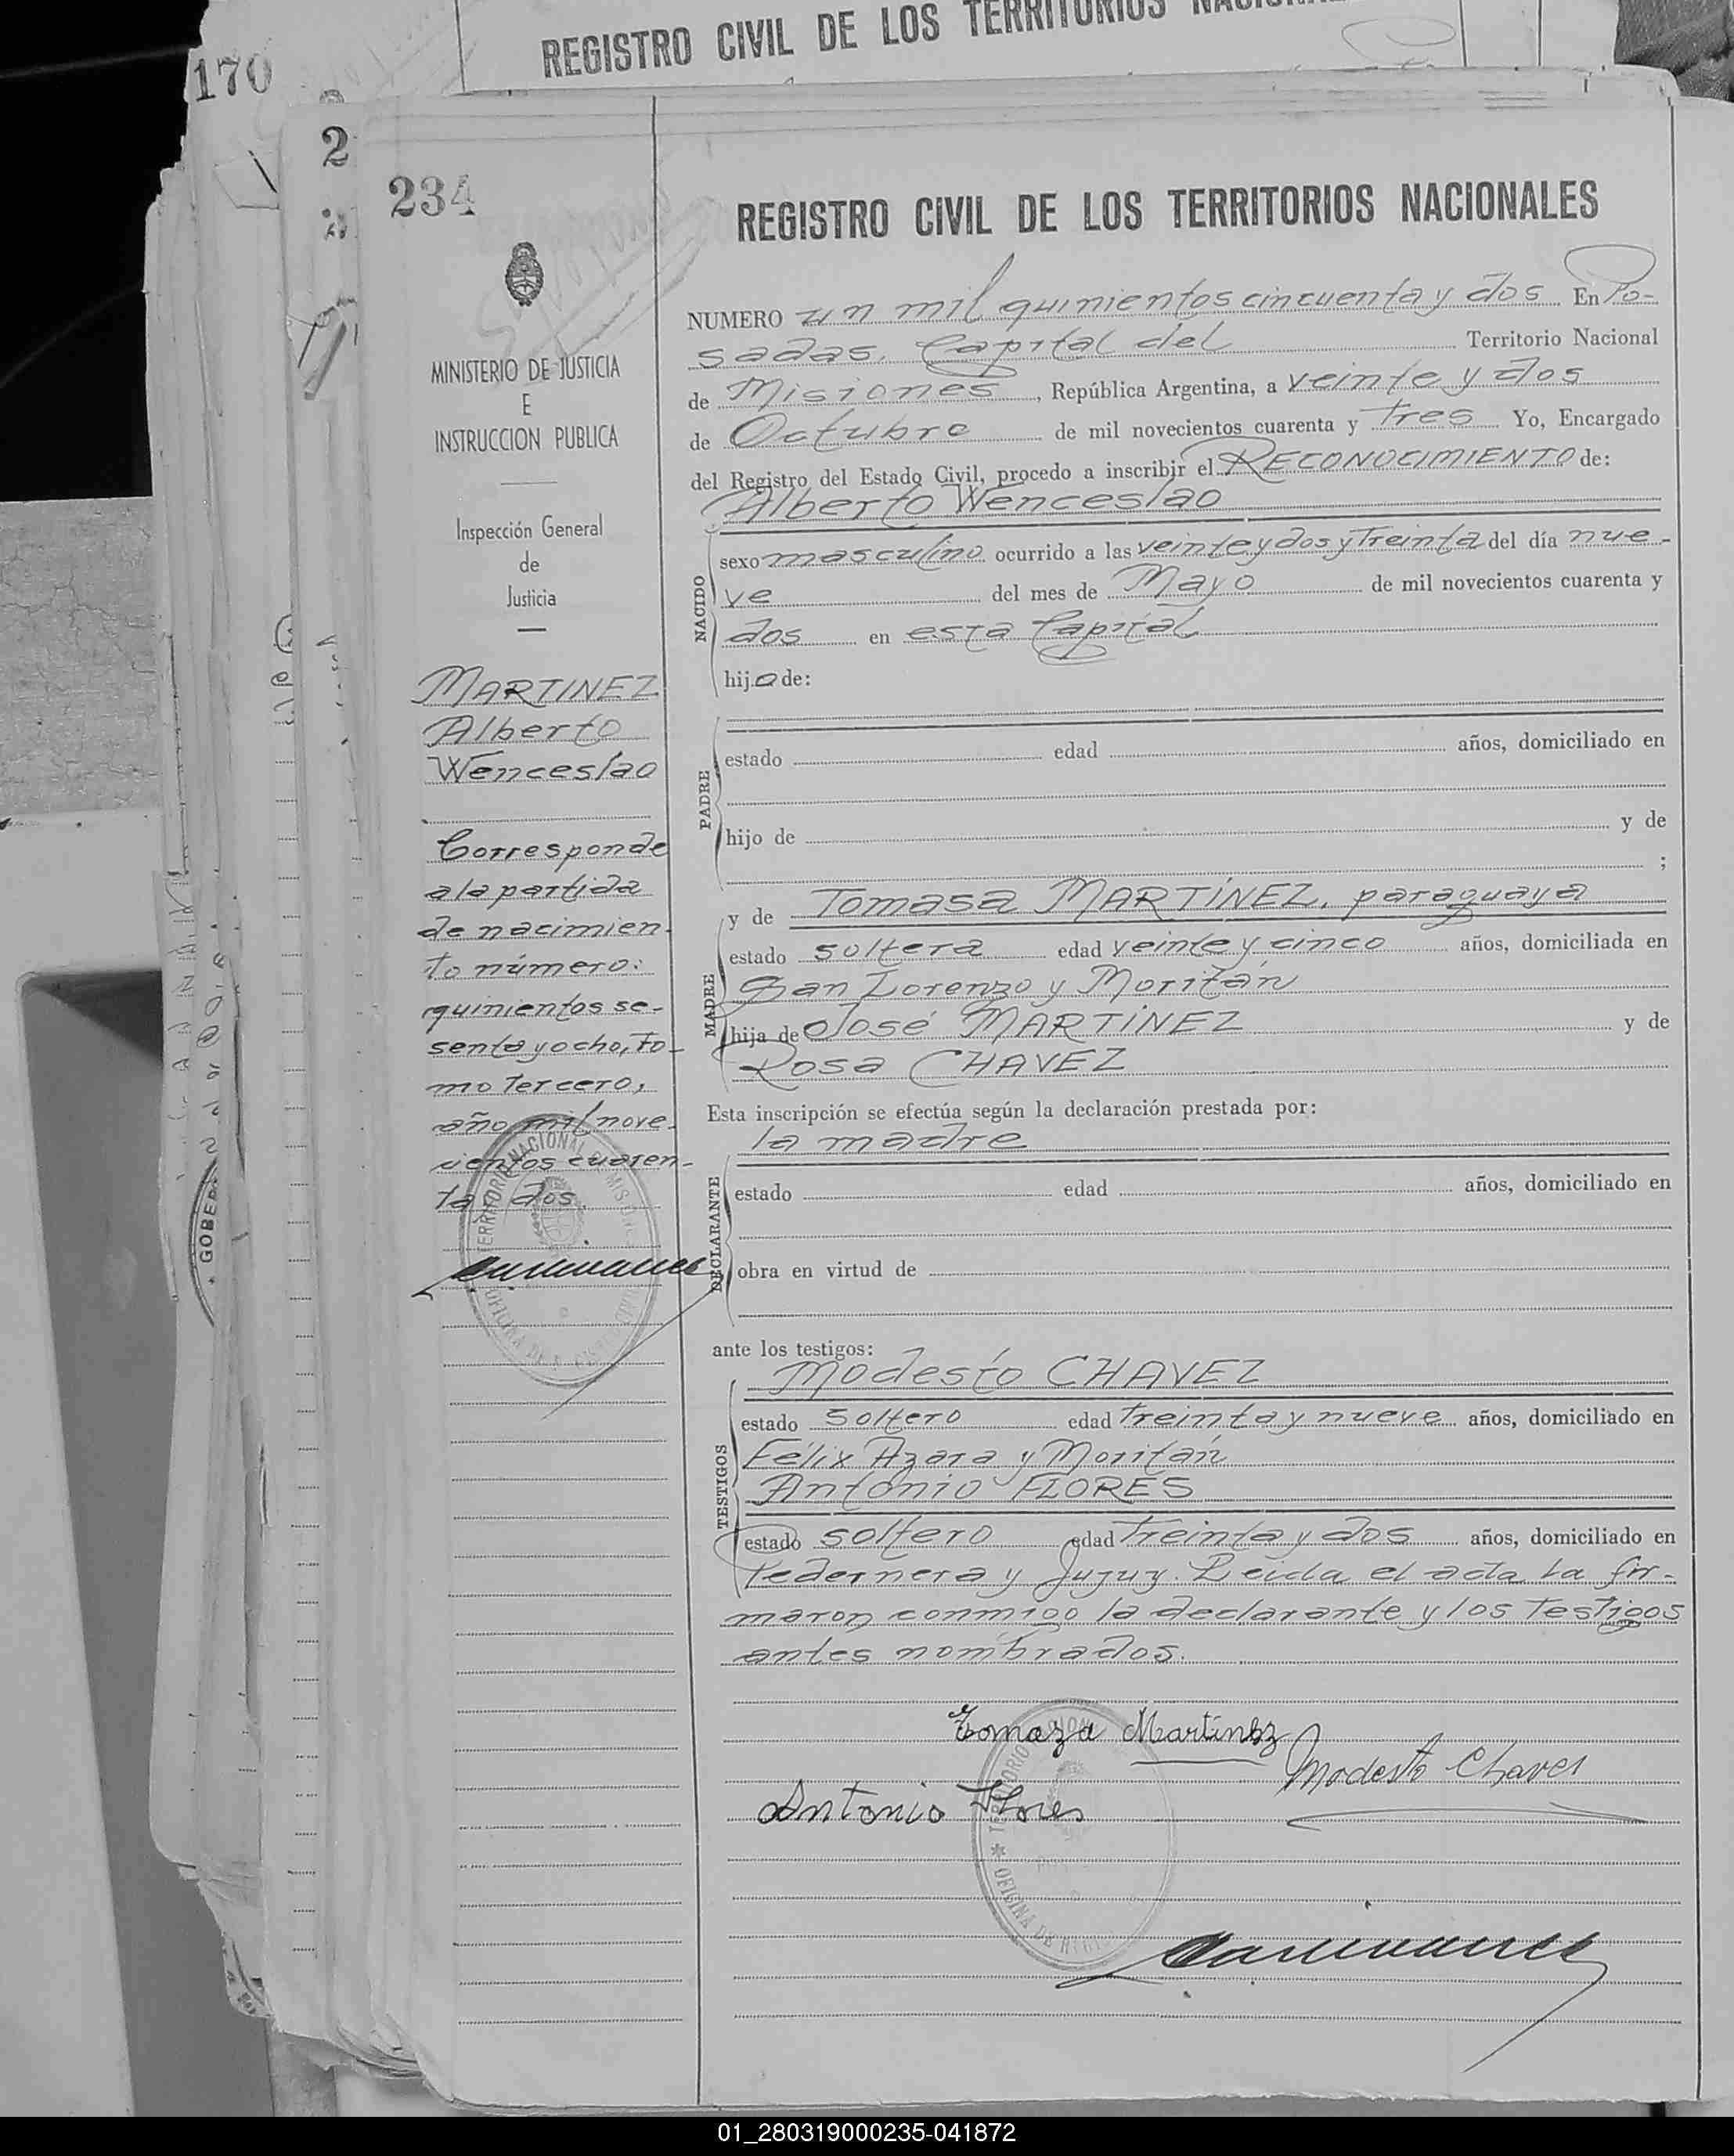 REGISTRO CIVIL DE LOS TERRITORIOS
170
2
234
REGISTRO CIVIL DE LOS TERRITORIOS NACIONALES
MINISTERIO DE JUSTICIA
E
INSTRUCCION PUBLICA
Inspección General
de
Justicia
MARTINEZ
Alberto
Wenceslao
Corresponde
a la partida
de nacimien-
to número:
quinientos se-
senta y ocho, to-
mo tercero,
año mil nove-
cientos cuaren-
ta y dos.
NUMERO un mil quinientos cincuenta y dos En Po-
sadas, Capital del Territorio Nacional
de Misiones, República Argentina, a veinte y dos
de Octubre de mil novecientos cuarenta y tres Yo, Encargado
del Registro del Estado Civil, procedo a inscribir el RECONOCIMIENTO de:
Alberto Wenceslao
NACIDO
sexo masculino ocurrido a las veinte y dos y treinta del día nue-
ve del mes de Mayo de mil novecientos cuarenta y
dos en esta Capital
hijo de:
PADRE
estado edad años, domiciliado en
hijo de y de
;
MADRE
y de Tomasa MARTÍNEZ, paraguaya
estado soltera edad veinte y cinco años, domiciliada en
San Lorenzo y Moritán
hija de José MARTÍNEZ y de
Rosa CHAVEZ
Esta inscripción se efectúa según la declaración prestada por:
la madre
DECLARANTE
estado edad años, domiciliado en
obra en virtud de
ante los testigos:
Modesto CHAVEZ
TESTIGOS
estado soltero edad treinta y nueve años, domiciliado en
Félix Azara y Moritán
Antonio FLORES
estado soltero edad treinta y dos años, domiciliado en
Pedernera y Jujuy. Leida el acta la fir-
maron conmigo la declarante y los testigos
antes nombrados.
Tomaza Martinez
Modesto Chaves
Antonio Flores
01_280319000235-041872